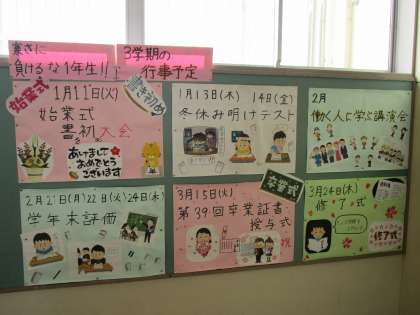 寒さに
負けるな1年生!!
3学期の
行事予定
始業式
書き初め
1月11日(火)
始業式
書初大会
あけまして
おめでとう
ございます
1月13日(木) 14日(金)
冬休み明けテスト
2月
働く人に学ぶ講演会
2月21日(月)22日(火)24日(木)
学年末評価
3月15日(火)
第39回卒業証書
授与式
祝
卒業式
3月24日(木)
修了式
修了式